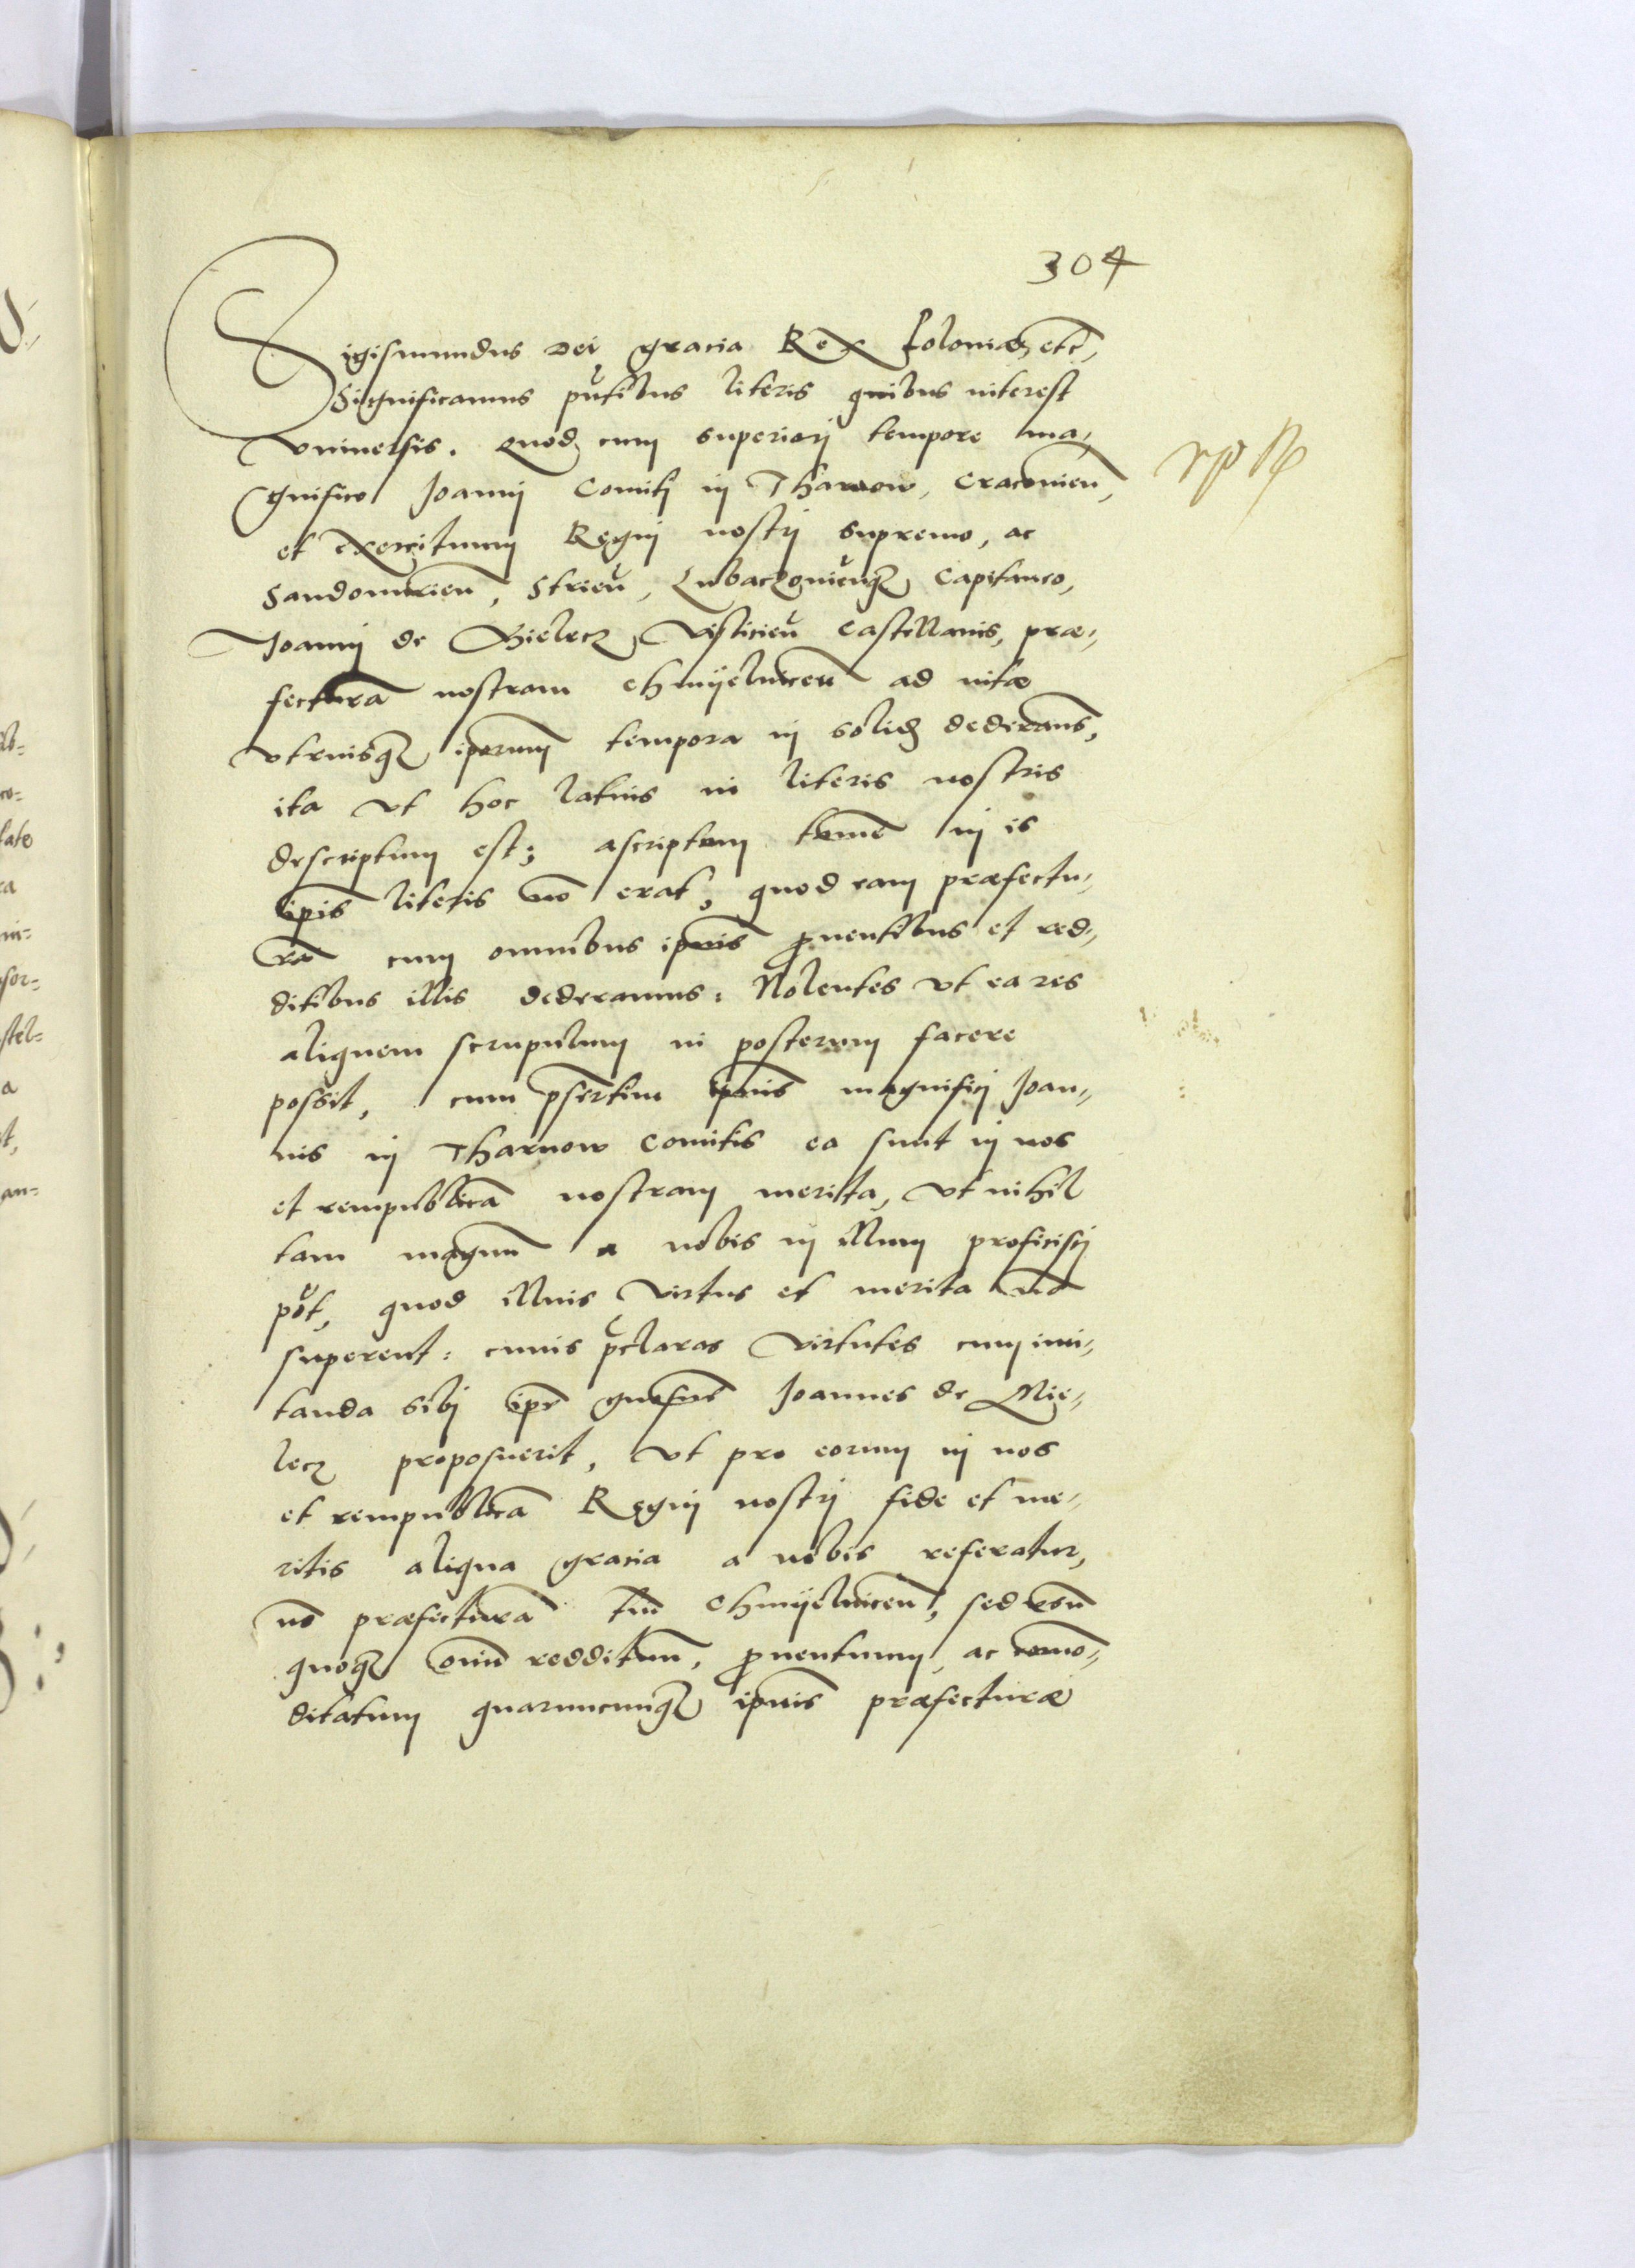 304
Sigismundus Dei gracia Rex Poloniae, etc̃,
Significamus pñtibus literis quibus interest
vniuersis. Quod cum superiori tempore ma-
gnifico Joanni Comiti in Tharnow, Cracouien̄,
et exercituum Regni nostri supremo, ac
Sandomirien̄, Strien̄, Lubaczouien̄q₃ Capitaneo,
Joanni de Mielecz Visliciеn̄ Castellanis, præ-
fecturā nostram Chmijelnicen̄ ad vitæ
vtriusq₃ ip̄orum tempora in solid̄ dederam̄s,
ita vt hoc latius in literis nostris
descriptum est; ascriptum tamē in is
ip̄is literis nō erat, quod eam præfectu-
rā cum omnibus ip̄ius ꝓuentibus et red-
ditibus illis dederamus: Nolentes vt ea res
aliquem scrupulum in posterum facere
possit, cum p̄sertim ip̄ius magnifici Joan-
nis in Tharnow Comitis ea sunt in nos
et rempublicā nostram merita, vt nihil
tam magnū a nobis in illum proficisci
pōt, quod illius virtus et merita nō
superent: cuius p̄claras virtutes cum imi-
tanda sibi ip̄e gn̄osus Joannes de Mie-
lecz proposuerit, vt pro eorum in nos
et rempublicā Regni nostri fide et me-
ritis aliqua gracia a nobis referatur,
nō præfecturā tm̄ Chmijelnicen̄, sed vsū
quoq₃ om̄iū reddituū, ꝓuentuum, ac com̄o-
ditatum quaruncunq₃ ip̄ius præfecturæ